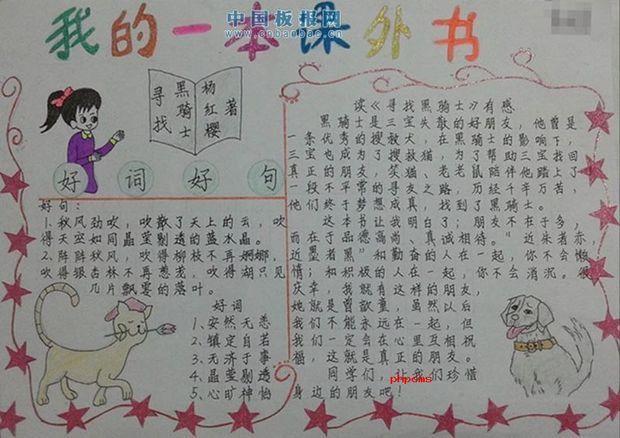 我的一本课外书
中国板报网
www.cnbanbao.cn
寻找
黑骑士
杨红樱
著
好词好句
好句：
1、秋风劲吹，吹散了天上的云，吹
得天空如同晶莹剔透的蓝水晶。
2、阵阵秋风，吹得柳枝不再婀娜，
吹得银杏林不再葱茏，吹得湖只见
几片飘零的落叶。
好词
1、安然无恙
2、镇定自若
3、无济于事
4、晶莹剔透
5、心旷神怡
读《寻找黑骑士》有感
黑骑士是三宝失散的好朋友，他曾是
一条优秀的搜救犬，在黑骑士的影响下，
三宝也成为了搜救猫，为了帮助三宝找回
真正的朋友，笑猫、老老鼠陪伴他踏上了
一段不平常的寻友之路，历经千辛万苦，
他们终于梦想成真，找到了黑骑士。
这本书让我明白了；朋友不在于多，
而在于品德高尚、真诚相待。“近朱者赤
近墨者黑”和勤奋的人在一起，你不会懒
惰；和积极的人在一起，你不会消沉。很
庆幸，我就有这样的朋友，
她就是曾歆童，虽然以后
我们不能永远在一起，但
我们一定会在心里互相祝
福，这就是真正的朋友。
同学们，让我们珍惜
身边的朋友吧！
phpcms